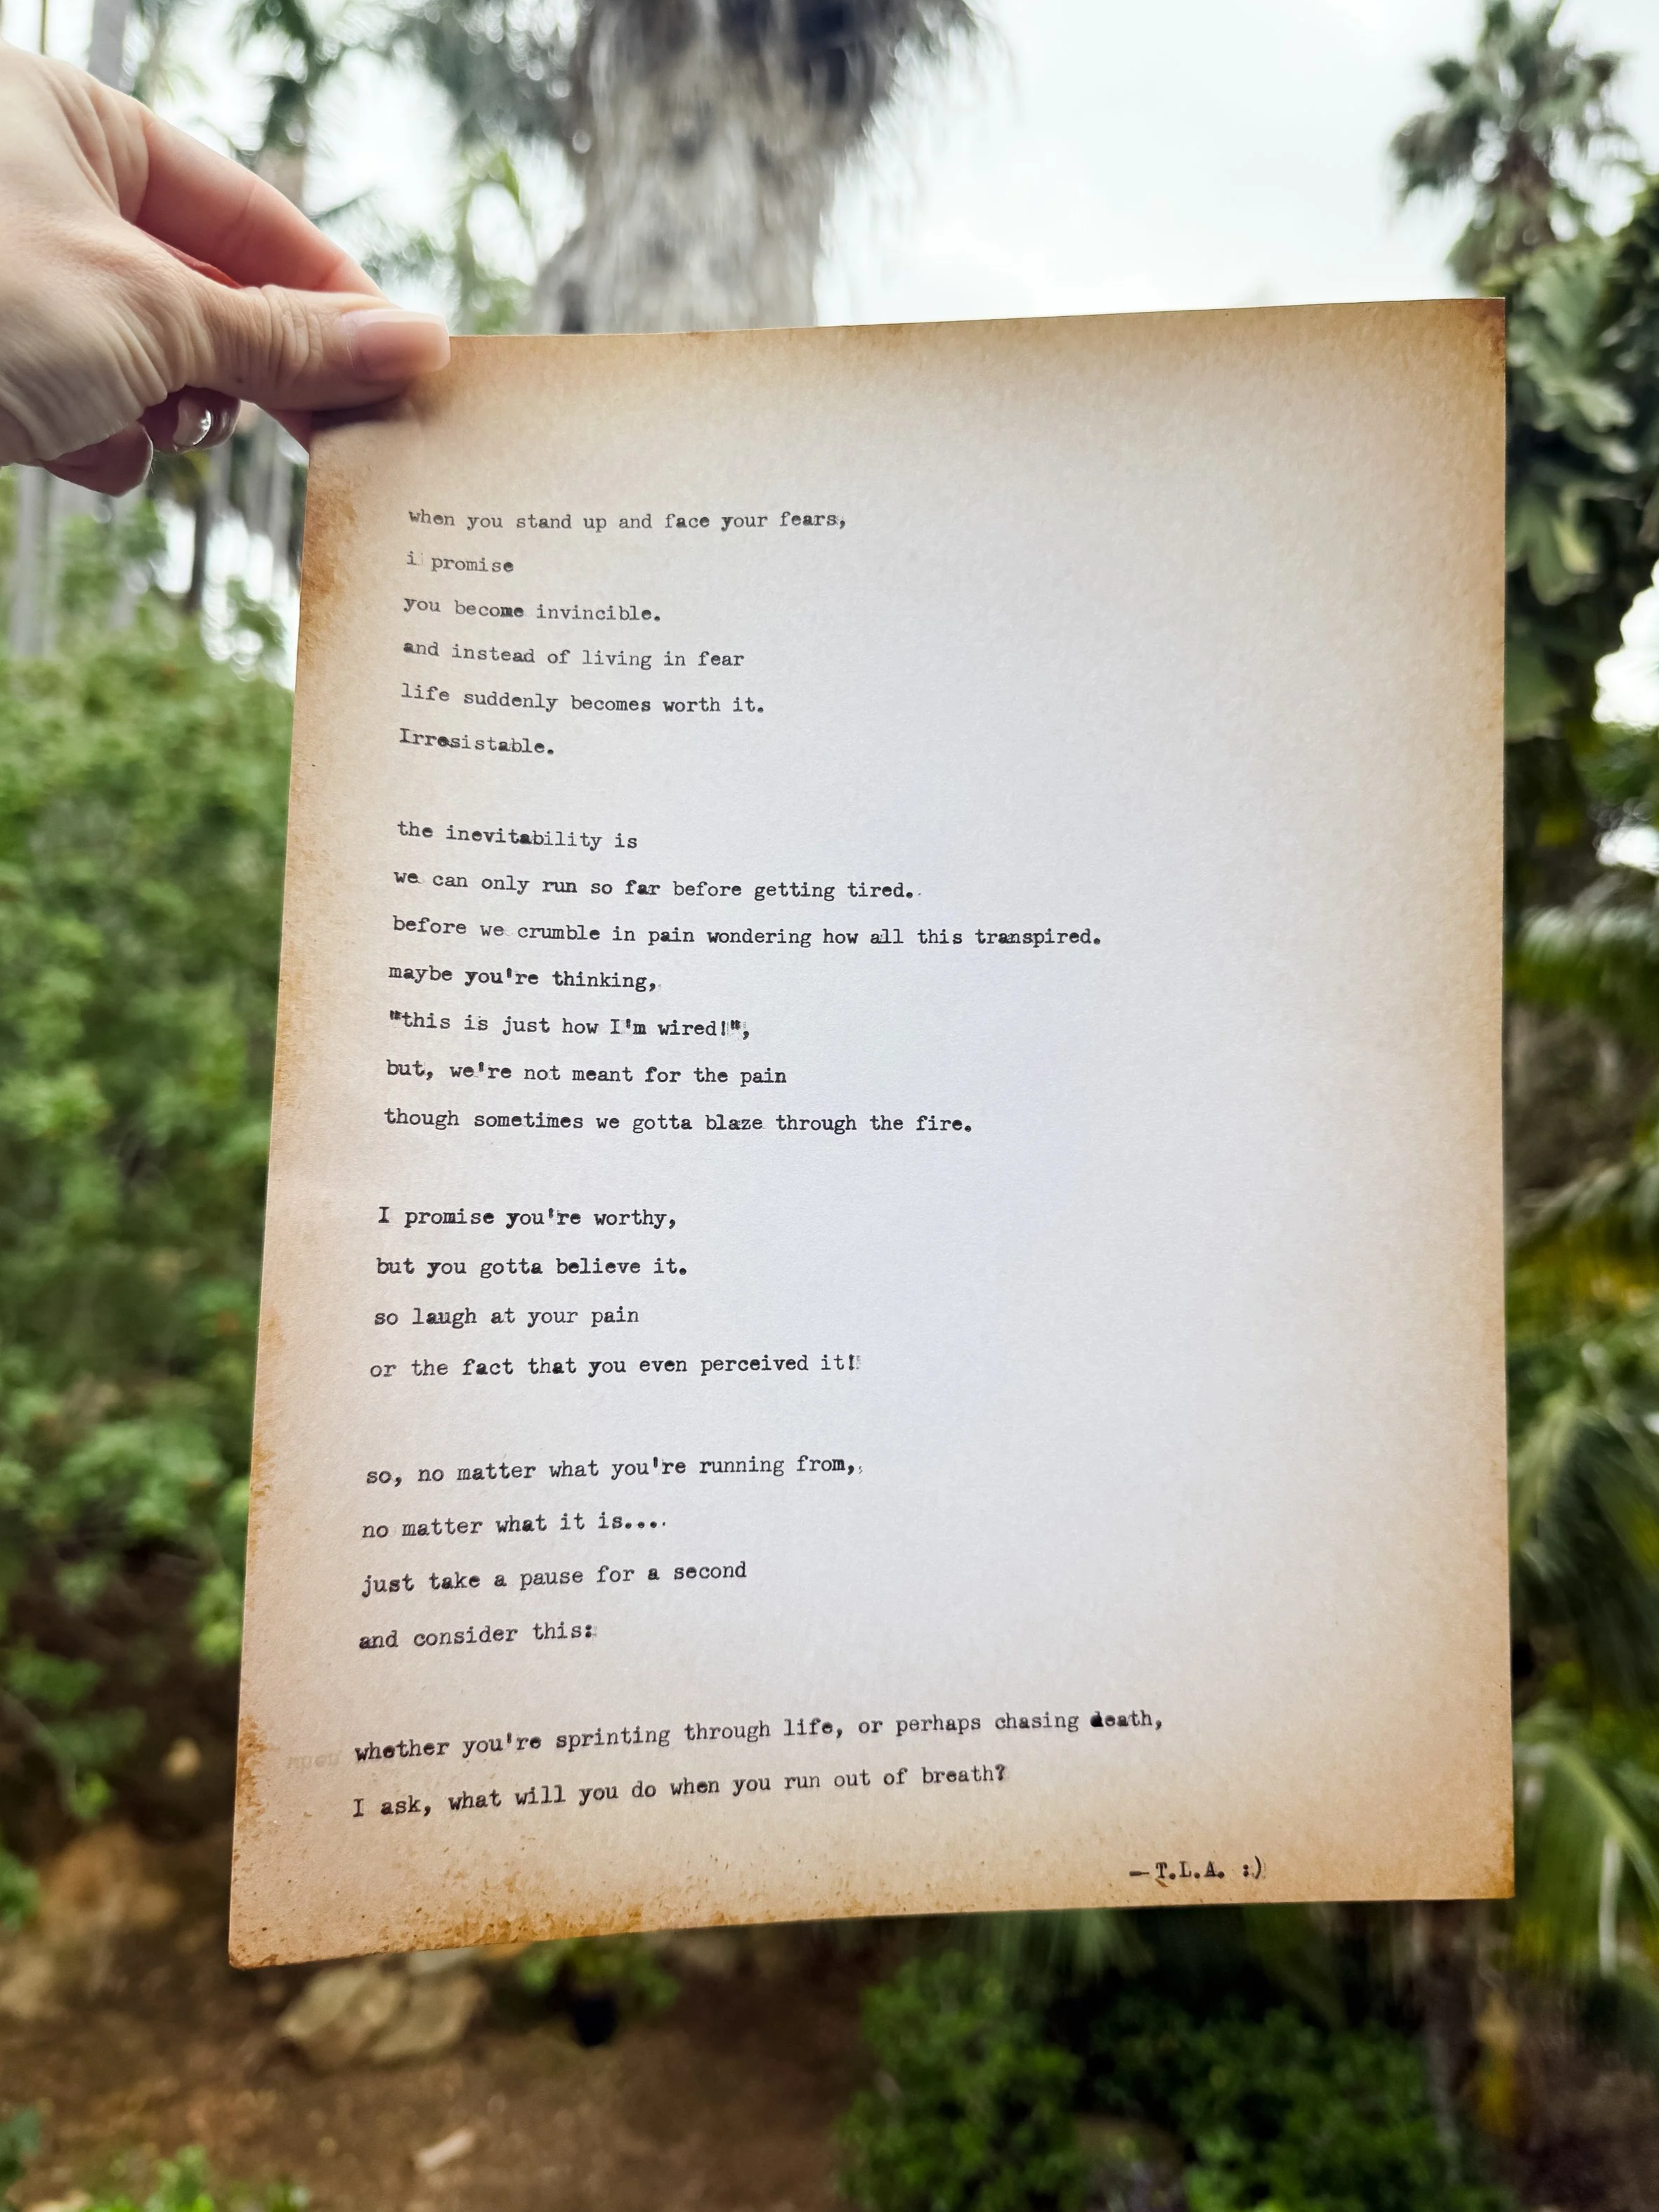 when you stand up and face your fears,
i promise
you become invincible.
and instead of living in fear
life suddenly becomes worth it.
Irresistable.
the inevitability is
we can only run so far before getting tired.
before we crumble in pain wondering how all this transpired.
maybe you're thinking,
"this is just how I'm wired!",
but, we're not meant for the pain
though sometimes we gotta blaze through the fire.
I promise you're worthy,
but you gotta believe it.
so laugh at your pain
or the fact that you even perceived it!
so, no matter what you're running from,
no matter what it is....
just take a pause for a second
and consider this:
whether you're sprinting through life, or perhaps chasing death,
I ask, what will you do when you run out of breath?
—T.L.A. :)